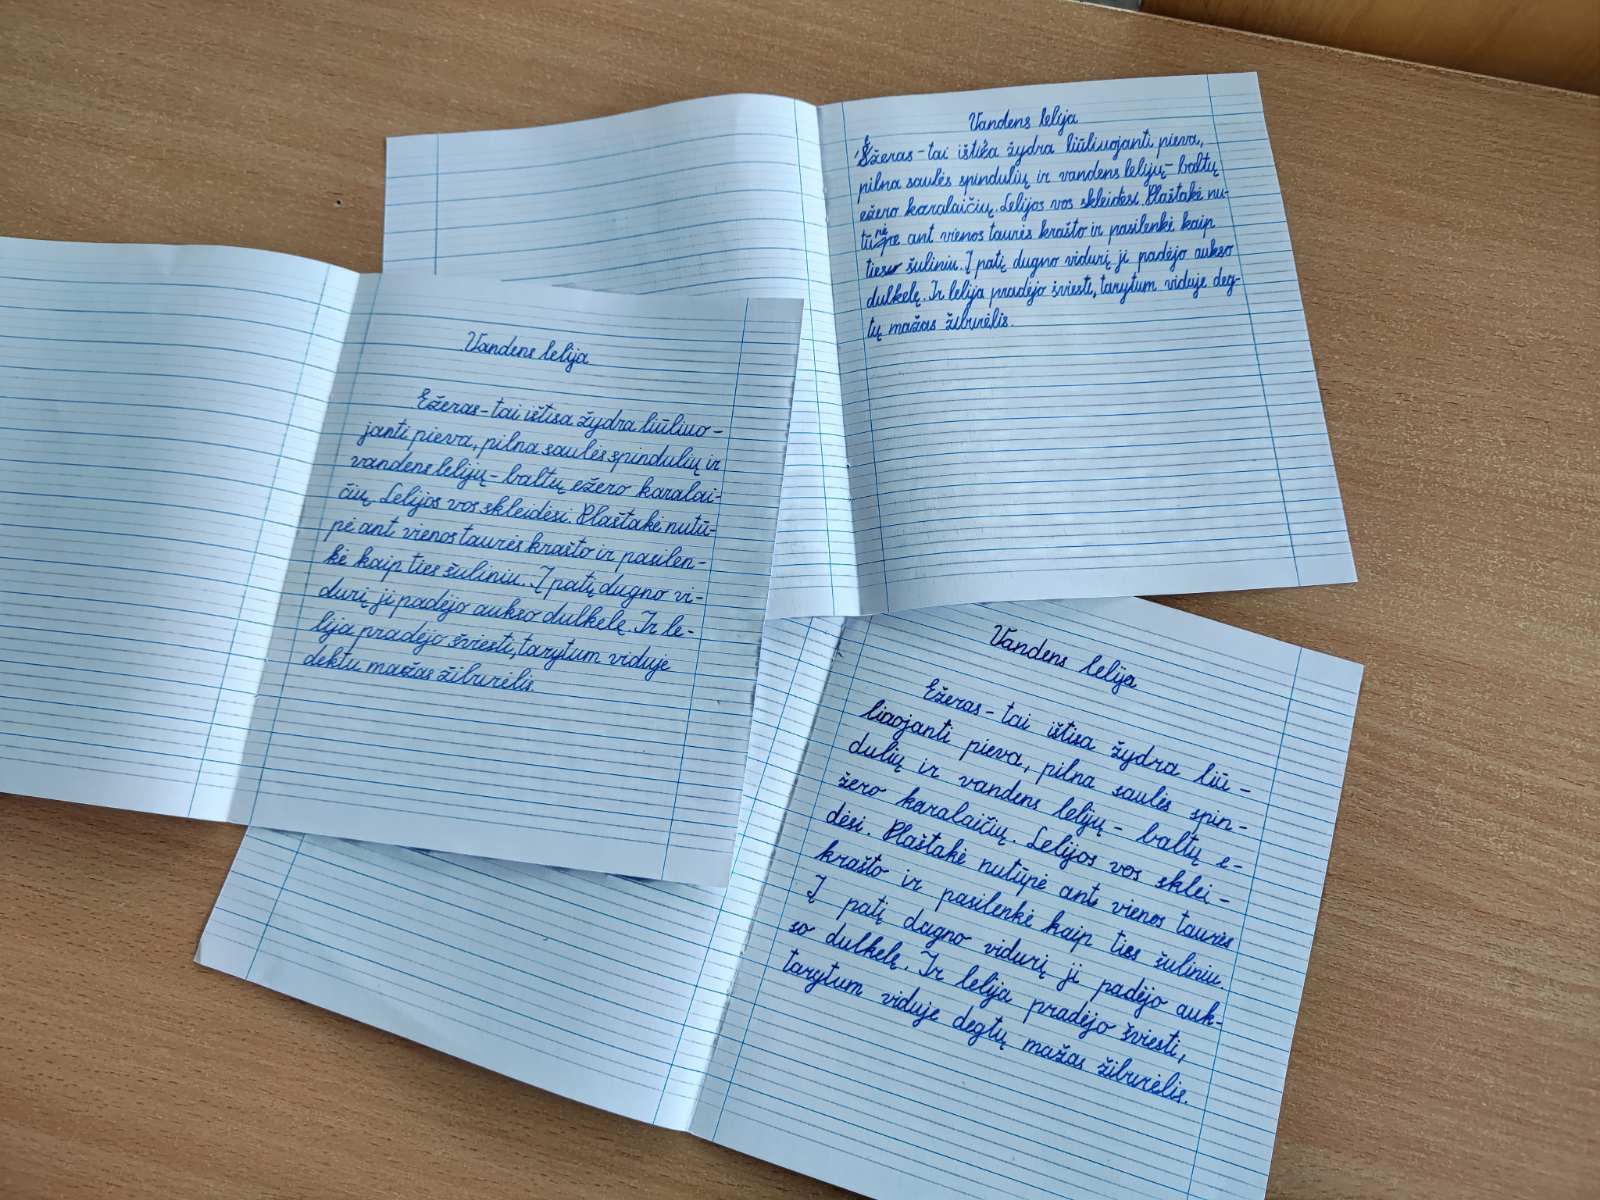 Vandens lelija
Ežeras - tai ištisa žydra liūliuojanti pieva,
pilna saulės spindulių ir vandens lelijų - baltų
ežero karalaičių. Lelijos vos skleidėsi. Plaštakė nu-
ant vienos taurės krašto ir pasilenkė kaip
ties šuliniu. Į patį dugno vidurį ji padėjo aukso
dulkelę. Ir lelija pradėjo šviesti, tarytum viduje deg-
tų mažas žiburėlis.
Vandens lelija
Ežeras - tai ištisa žydra liūliuo-
janti pieva, pilna saulės spindulių ir
vandens lelijų - baltų ežero karalai-
čių. Lelijos vos skleidėsi. Plaštakė nutū-
pė ant vienos taurės krašto ir pasilen-
kė kaip ties šuliniu. Į patį dugno vi-
durį ji padėjo aukso dulkelę. Ir le-
lija pradėjo šviesti, tarytum viduje
dektu mažas žiburėlis.
Vandens lelija
Ežeras - tai ištisa žydra liū-
liaojanti pieva, pilna saulės spin-
dulių ir vandens lelijų - baltų e-
žero karalaičių. Lelijos vos sklei-
dėsi. Plaštakė nutūpė ant vienos taurės
krašto ir pasilenkė kaip ties šuliniu.
Į patį dugno vidurį ji padėjo auk-
so dulkelę. Ir lelija pradėjo šviesti,
tarytum viduje degtų mažas žiburėlis.